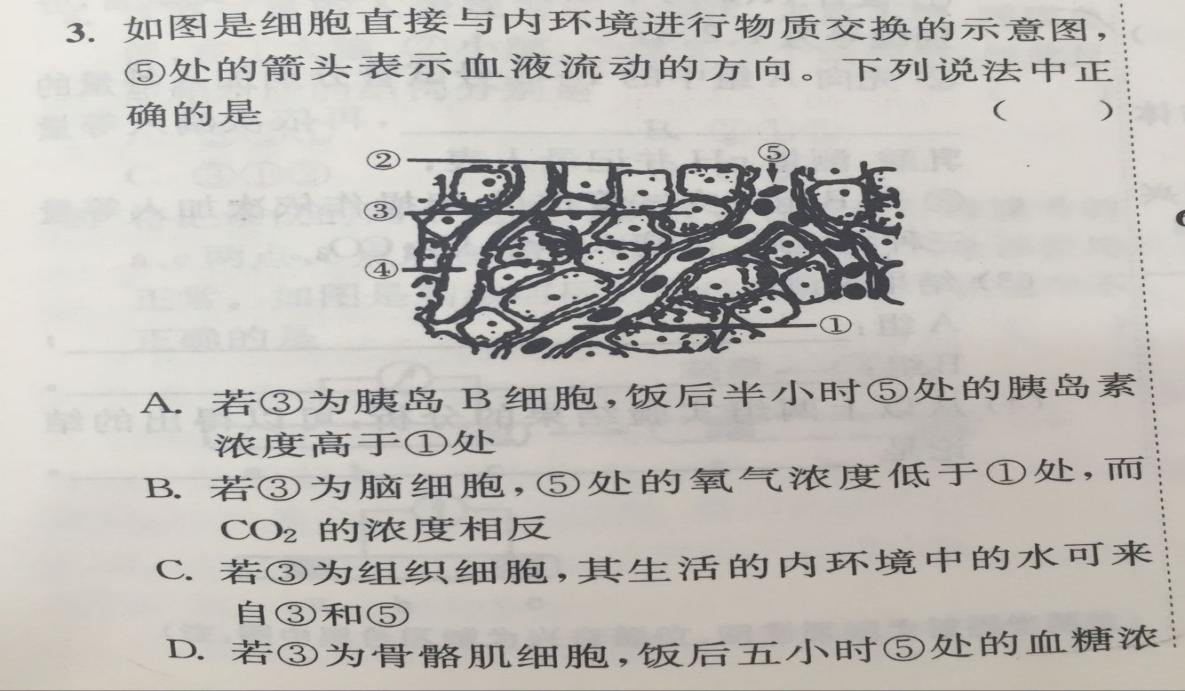 3. 如图是细胞直接与内环境进行物质交换的示意图，
⑤处的箭头表示血液流动的方向。下列说法中正
确的是 （ ）
②
⑤
③
④
①
A. 若③为胰岛 B 细胞，饭后半小时⑤处的胰岛素
浓度高于①处
B. 若③为脑细胞，⑤处的氧气浓度低于①处，而
CO₂ 的浓度相反
C. 若③为组织细胞，其生活的内环境中的水可来
自③和⑤
D. 若③为骨骼肌细胞，饭后五小时⑤处的血糖浓